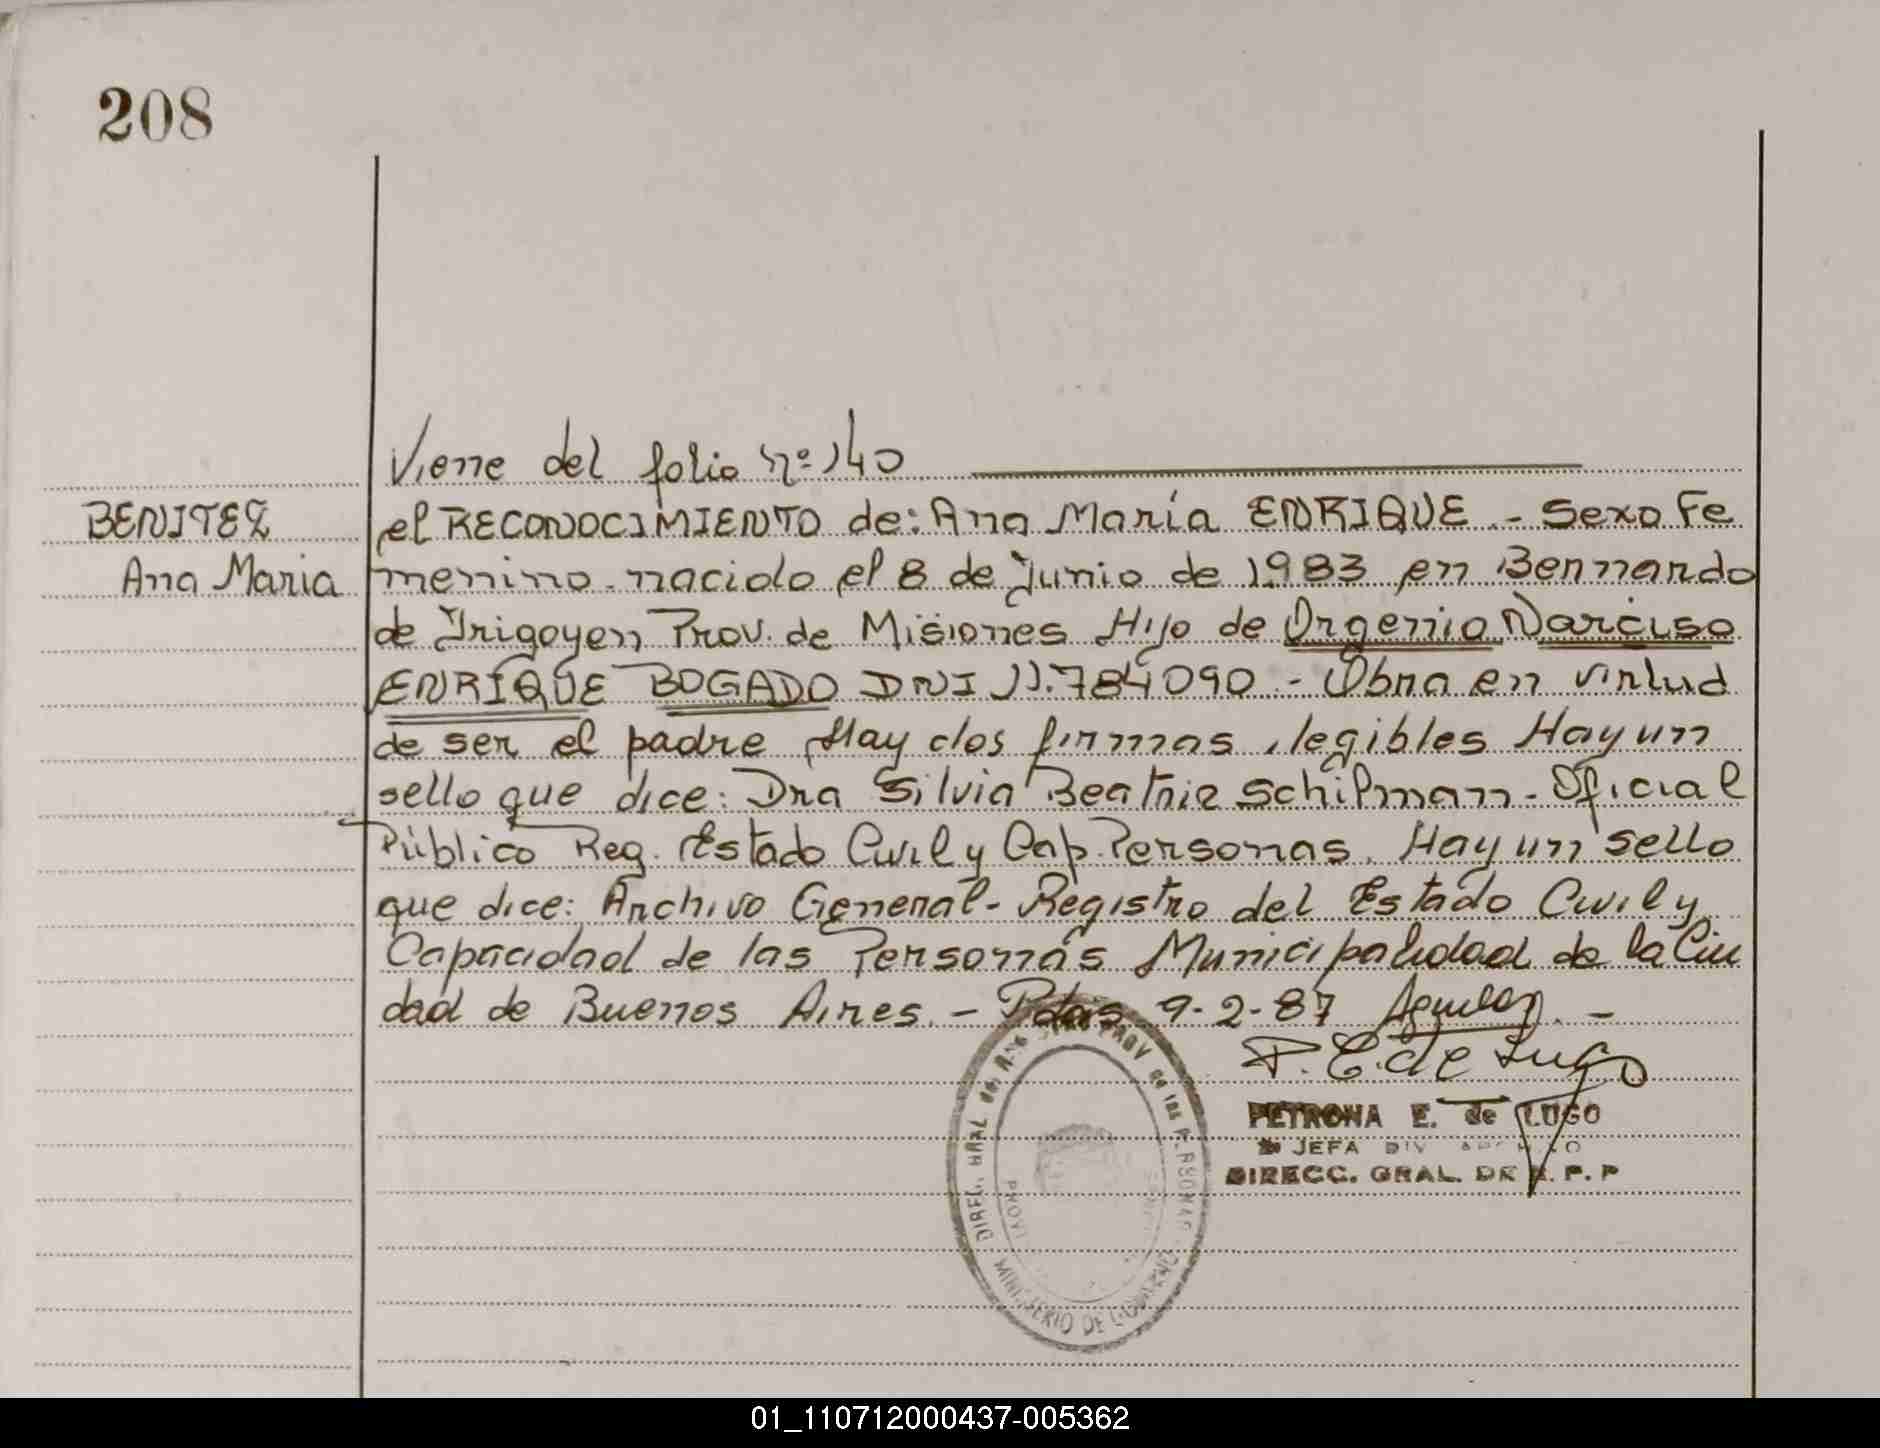 208
Viene del folio nº 140
BENITEZ
Ana Maria
el RECONOCIMIENTO de: Ana María ENRIQUE - Sexo Fe
menino - nacido el 8 de Junio de 1983 en Bernardo
de Irigoyen Prov. de Misiones Hijo de Orgenio Narciso
ENRIQUE BOGADO DNI 11.784090 - Obra en virtud
de ser el padre Hay dos firmas ilegibles Hay un
sello que dice: Dra Silvia Beatriz Schilman - Oficial
Público Reg. Estado Civil y Cap. Personas. Hay un sello
que dice: Archivo General - Registro del Estado Civil y
Capacidad de las Personas Municipalidad de la Ciu
dad de Buenos Aires. - Pdas 9-2-87
P. E. de Lugo
PETRONA E. de LUGO
JEFA DIV
DIRECC. GRAL. DE R. P. P
PROV de las PERSONAS
MINISTERIO DE GOBIERNO
01_110712000437-005362